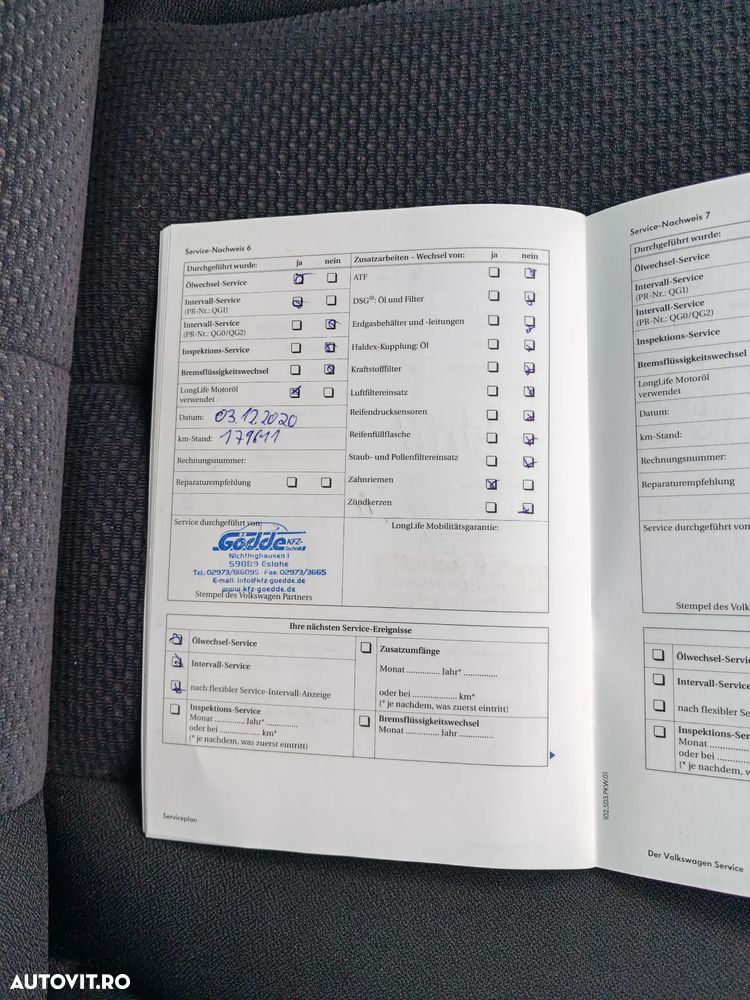 Service-Nachweis 6
Durchgeführt wurde: ja nein
Ölwechsel-Service
Intervall-Service
(PR-Nr.: QG1)
Intervall-Service
(PR-Nr.: QG0/QG2)
Inspektions-Service
Bremsflüssigkeitswechsel
LongLife Motoröl
verwendet
Datum: 03.12.2020
km-Stand: 179611
Rechnungsnummer:
Reparaturempfehlung
Zusatzarbeiten – Wechsel von: ja nein
ATF
DSG®: Öl und Filter
Erdgasbehälter und -leitungen
Haldex-Kupplung: Öl
Kraftstofffilter
Luftfiltereinsatz
Reifendrucksensoren
Reifenfüllflasche
Staub- und Pollenfiltereinsatz
Zahnriemen
Zündkerzen
Service durchgeführt von:
Gödde KFZ-
Technik
Nichtinghausen 1
59889 Eslohe
Tel.: 02973/818095 · Fax: 02973/3665
E-mail: info@kfz-goedde.de
www.kfz-goedde.de
Stempel des Volkswagen Partners
LongLife Mobilitätsgarantie:
Ihre nächsten Service-Ereignisse
Ölwechsel-Service
Intervall-Service
nach flexibler Service-Intervall-Anzeige
Inspektions-Service
Monat .............. Jahr* ..............
oder bei .............. km*
(* je nachdem, was zuerst eintritt)
Zusatzumfänge
Monat .............. Jahr* ..............
oder bei .................. km*
(* je nachdem, was zuerst eintritt)
Bremsflüssigkeitswechsel
Monat .............. Jahr ..............
Serviceplan
102.5D3.PKW.01
Service-Nachweis 7
Durchgeführt wurde:
Ölwechsel-Service
Intervall-Service
(PR-Nr.: QG1)
Intervall-Service
(PR-Nr.: QG0/QG2)
Inspektions-Service
Bremsflüssigkeitswechsel
LongLife Motoröl
verwendet
Datum:
km-Stand:
Rechnungsnummer:
Reparaturempfehlung
Service durchgeführt von:
Stempel des Volksw
Ölwechsel-Service
Intervall-Service
nach flexibler Se
Inspektions-Ser
Monat ..........
oder bei ..........
(* je nachdem, was
Der Volkswagen Service
AUTOVIT.RO